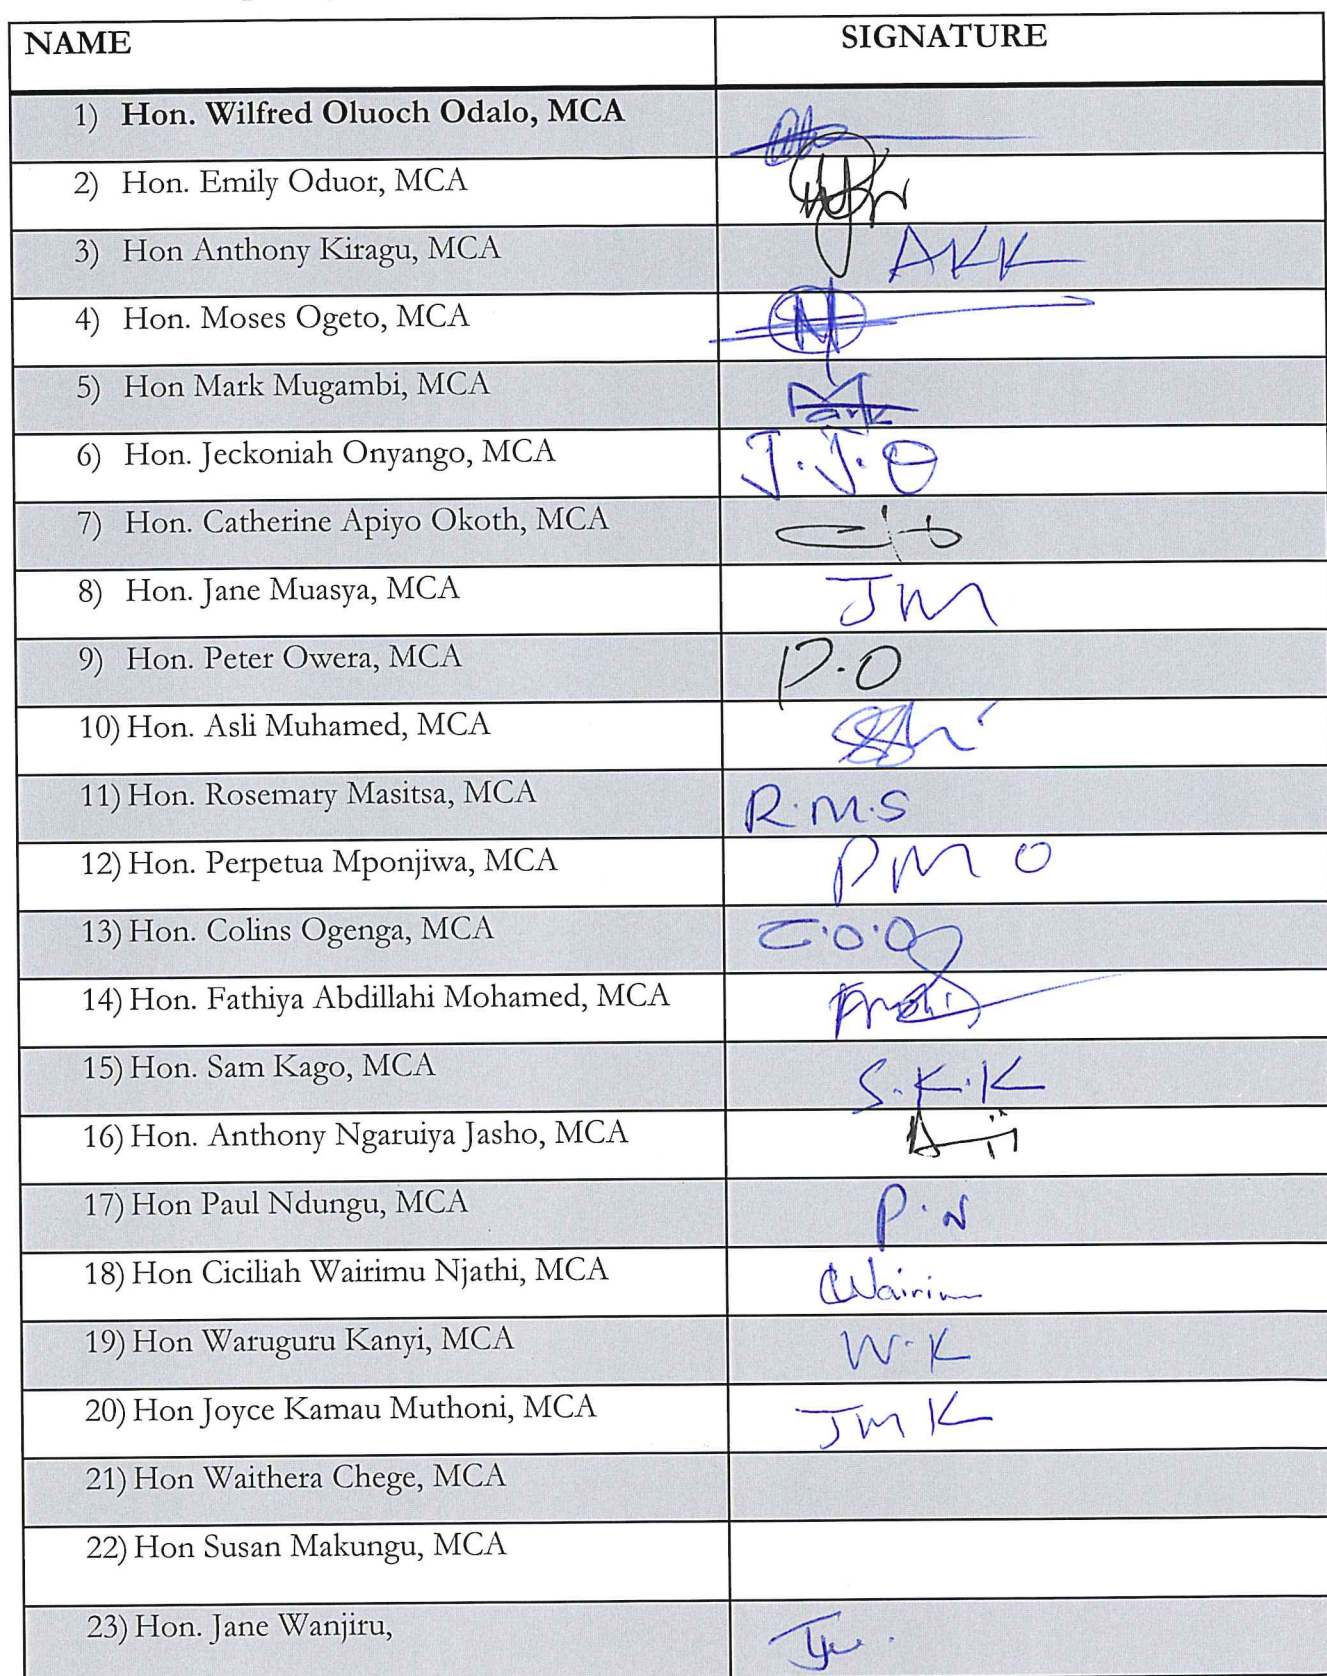 NAME SIGNATURE
1) Hon. Wilfred Oluoch Odalo, MCA
2) Hon. Emily Oduor, MCA
3) Hon Anthony Kiragu, MCA AKK
4) Hon. Moses Ogeto, MCA
5) Hon Mark Mugambi, MCA Mark
6) Hon. Jeckoniah Onyango, MCA J.J.O
7) Hon. Catherine Apiyo Okoth, MCA
8) Hon. Jane Muasya, MCA JM
9) Hon. Peter Owera, MCA P.O
10) Hon. Asli Muhamed, MCA
11) Hon. Rosemary Masitsa, MCA R.M.S
12) Hon. Perpetua Mponjiwa, MCA PMO
13) Hon. Colins Ogenga, MCA C.O.O
14) Hon. Fathiya Abdillahi Mohamed, MCA
15) Hon. Sam Kago, MCA S.K.K
16) Hon. Anthony Ngaruiya Jasho, MCA
17) Hon Paul Ndungu, MCA P.N
18) Hon Ciciliah Wairimu Njathi, MCA
19) Hon Waruguru Kanyi, MCA W.K
20) Hon Joyce Kamau Muthoni, MCA JMK
21) Hon Waithera Chege, MCA
22) Hon Susan Makungu, MCA
23) Hon. Jane Wanjiru,